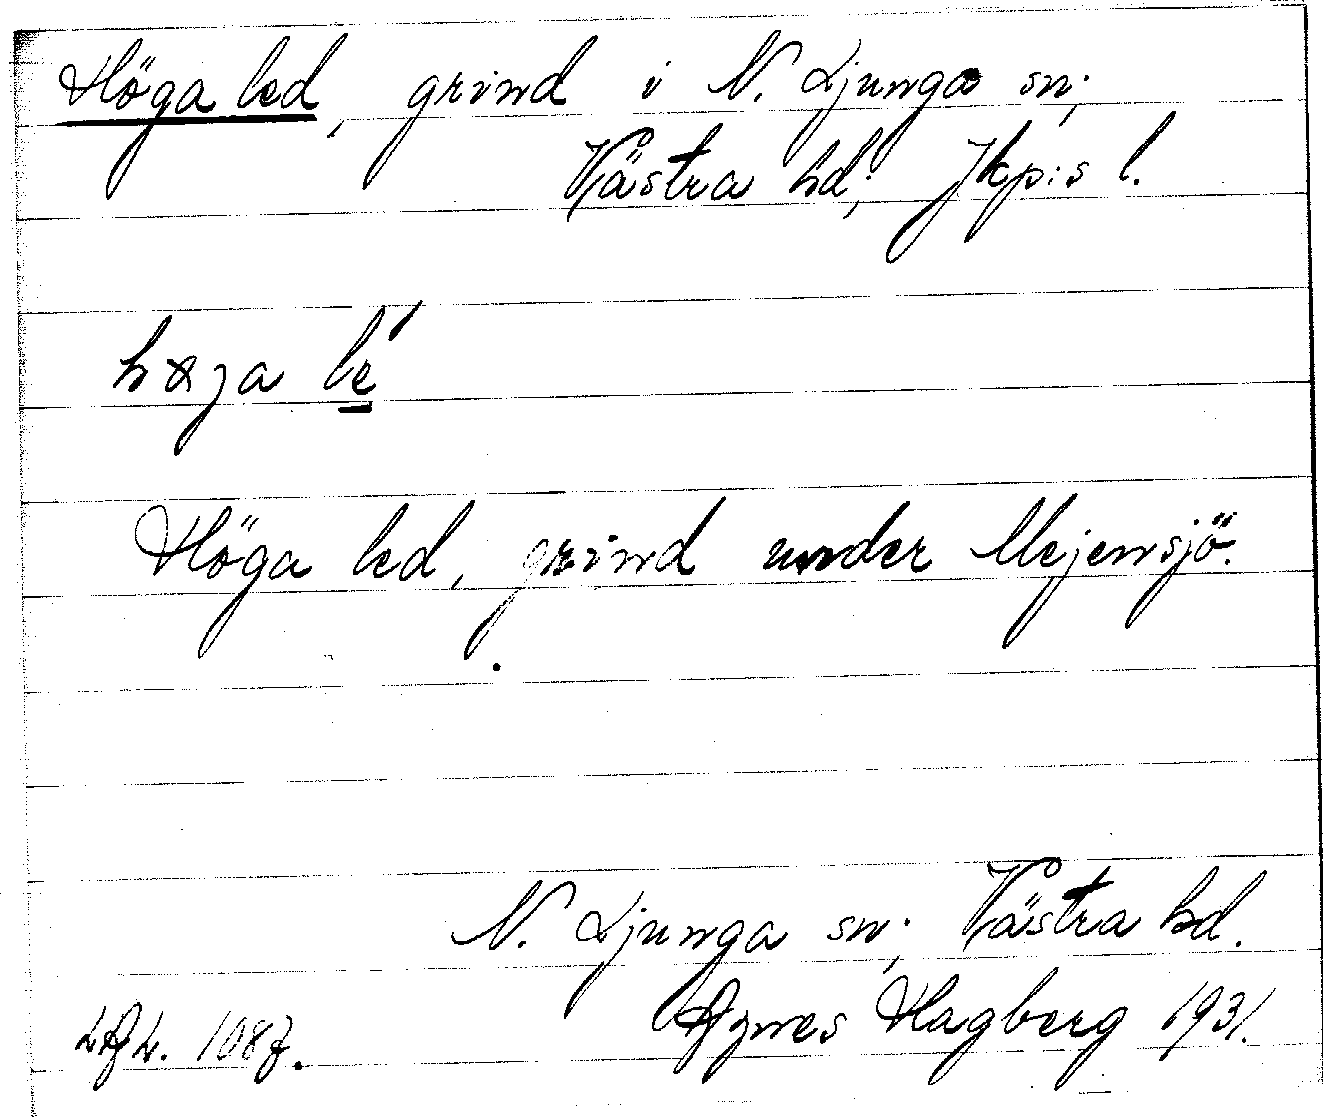 Höga led, grind i N. Ljunga sn;
Västra hd; Jkp:s l.
Höga led, grind under Mejensjö.
N. Ljunga sn; Västra hd.
Agnes Hagberg 1931.